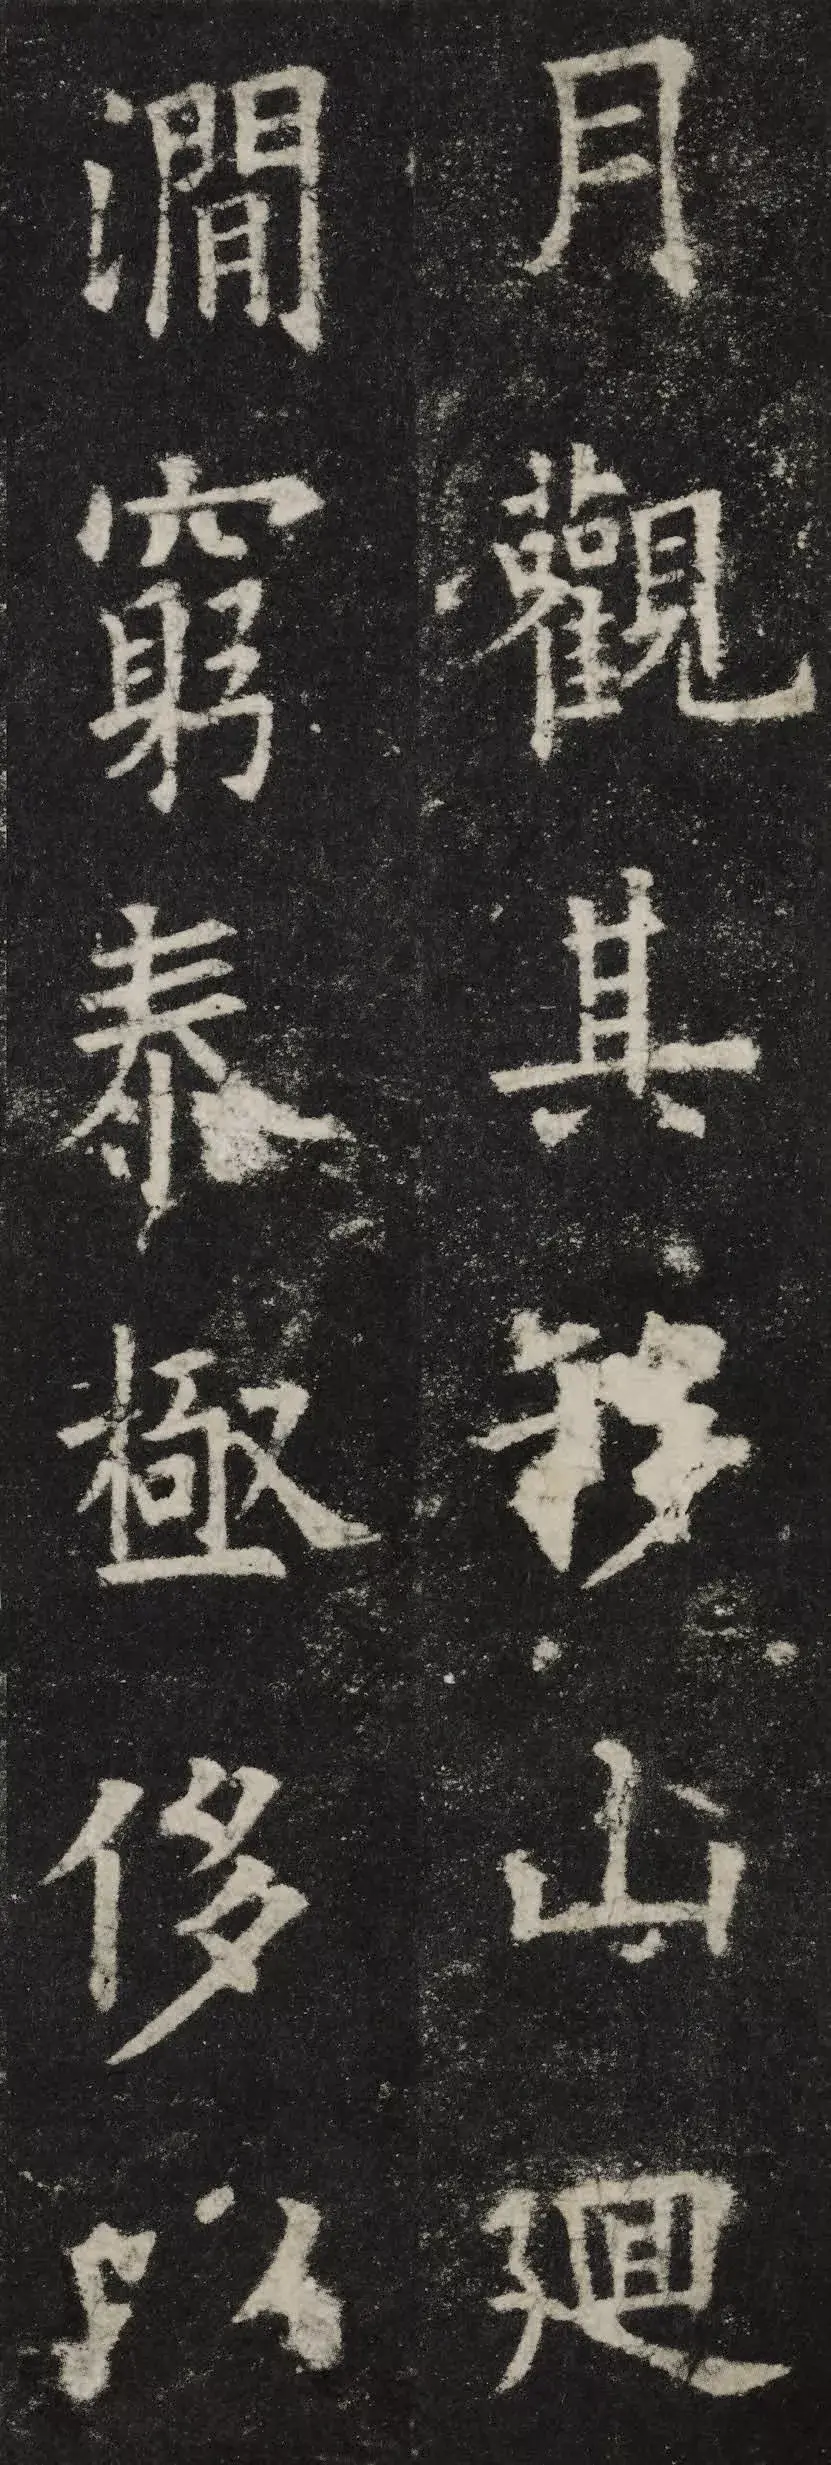 月觀其移山廻
㵎窮泰極侈以